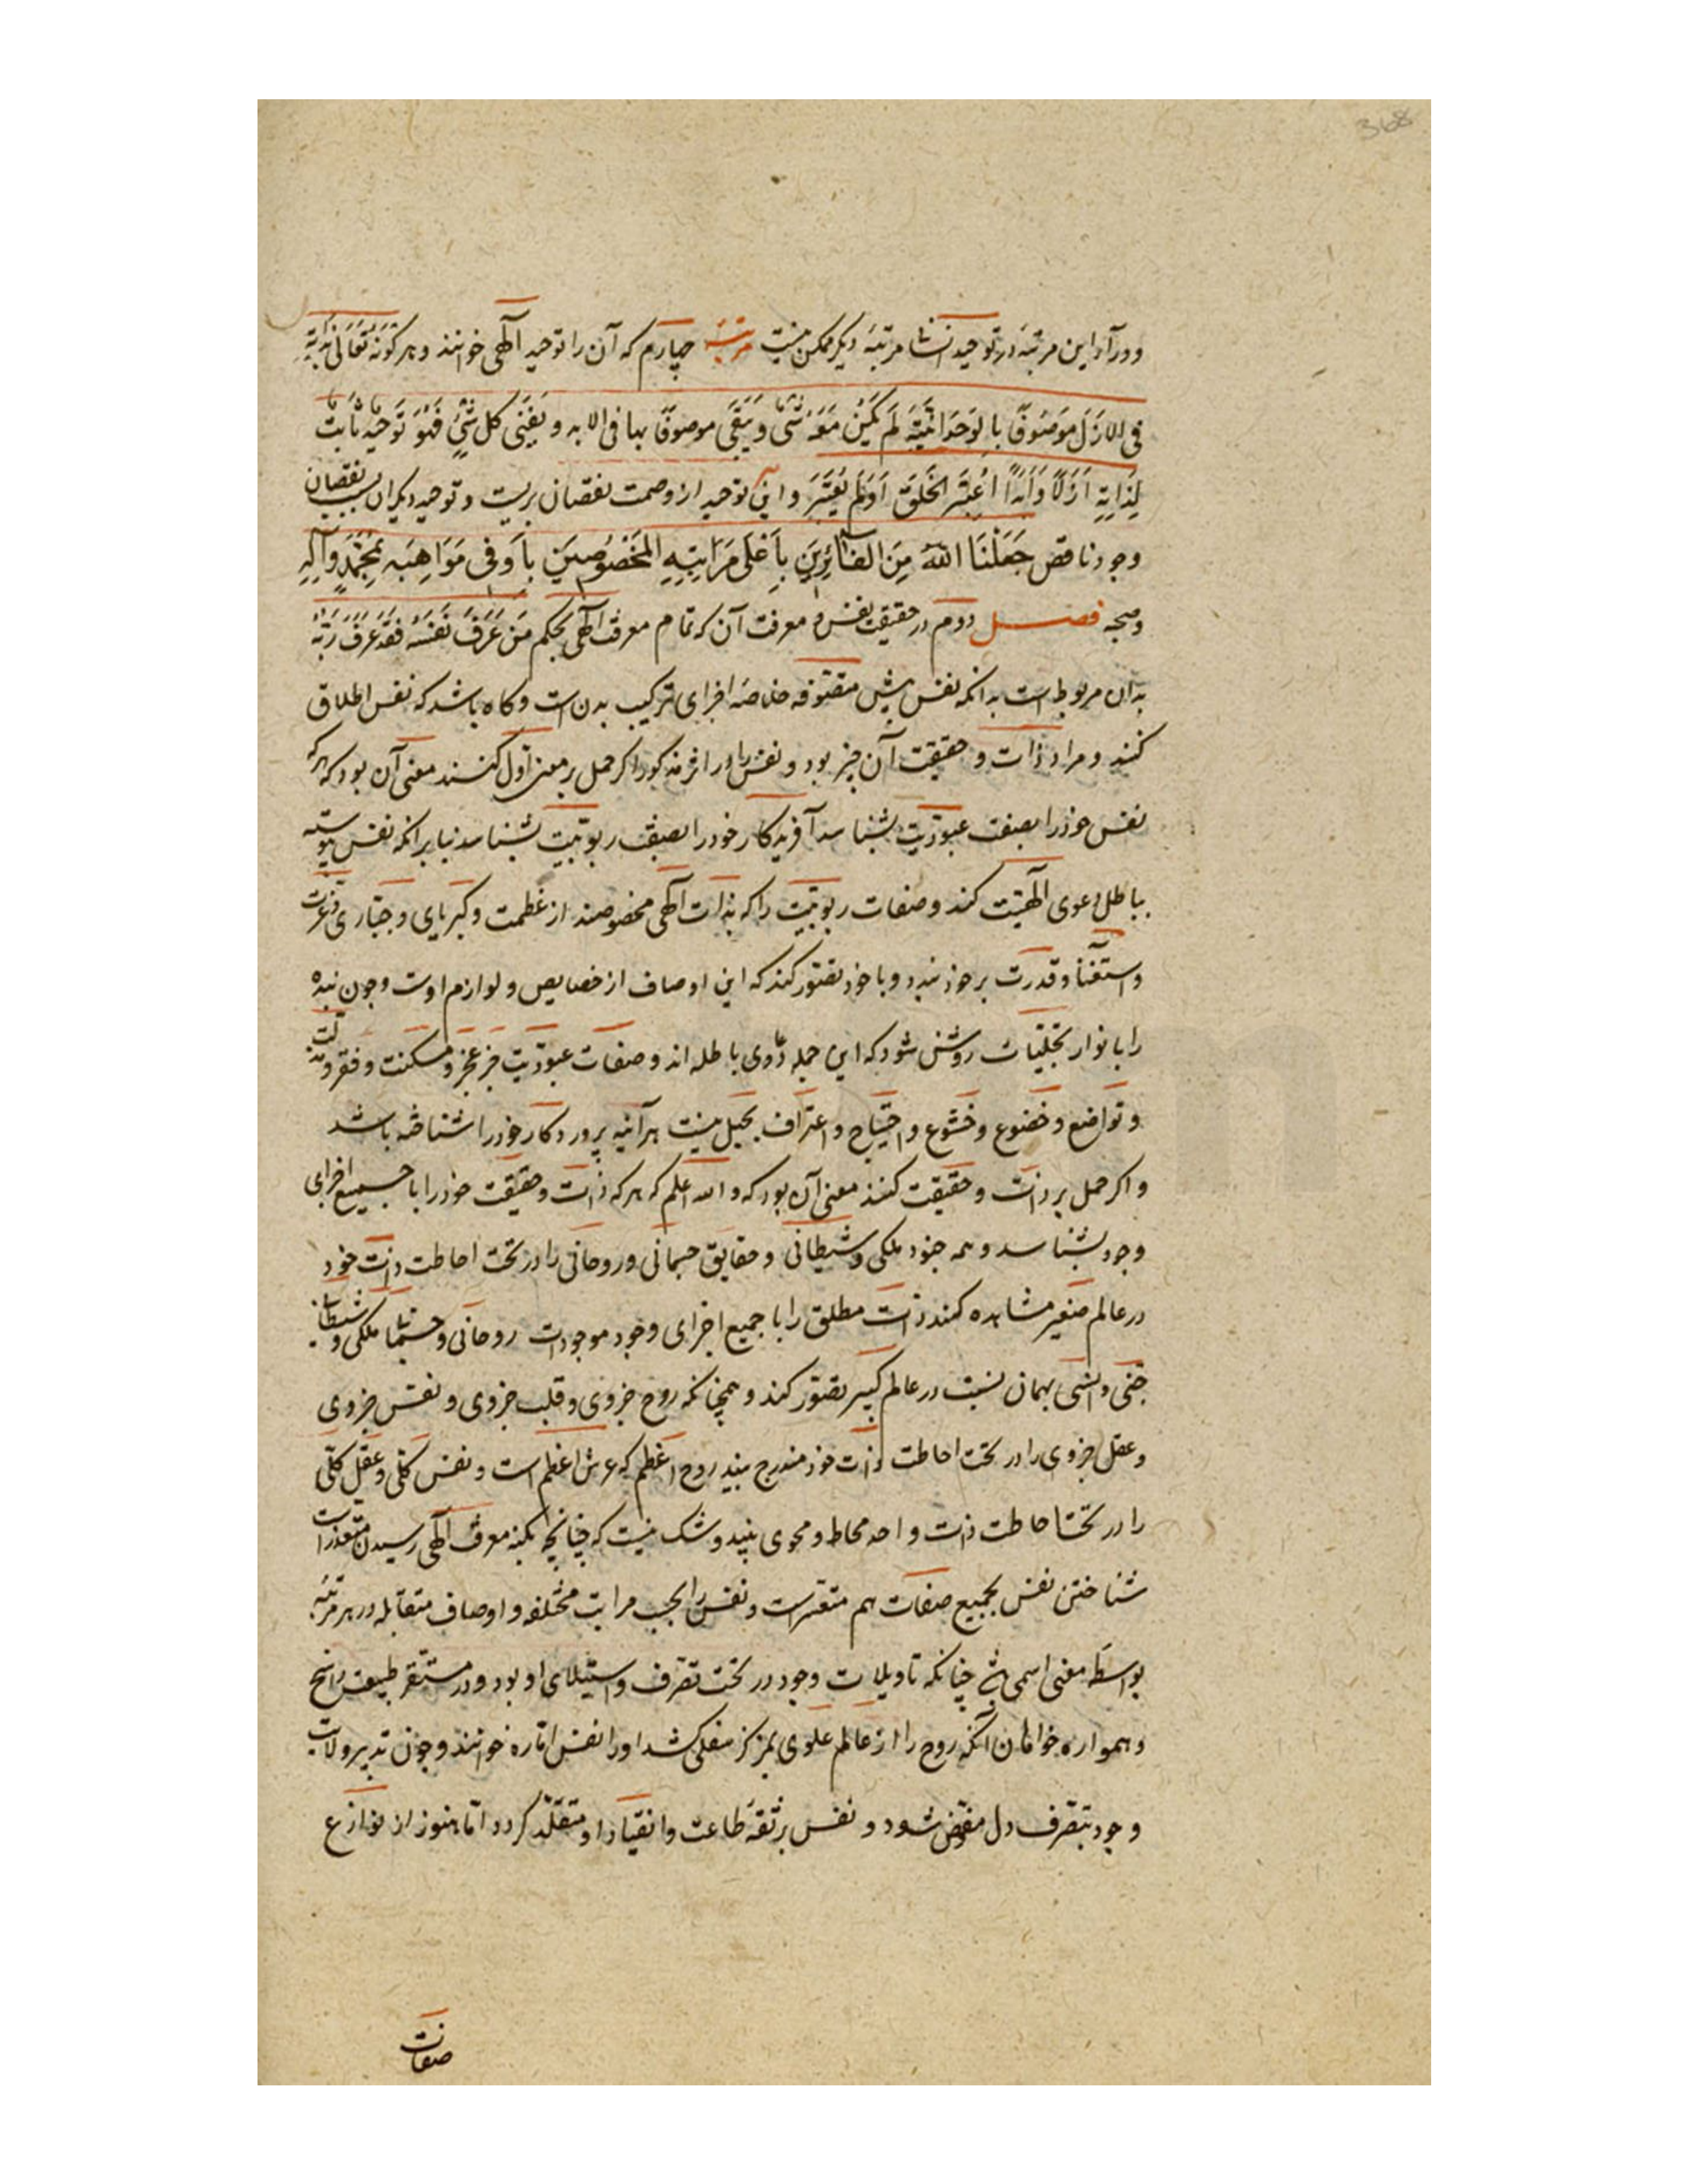 368
و ورآء این مرتبه در توحید انسان مرتبهٔ دیگر ممکن نیست مرتبهٔ چهارم که آن را توحید آلهی خوانند و هو کونه تعالی بذاته
فی الازل موصوفا بالوحدانیة لم یکن معه شیٔ و یبقی موصوفا بها فی الابد و یفنی کل شیٔ فهو توحید ثابت
لذاته ازلاً وابداً اعتبر الخلق او لم یعتبر و این توحید از وصمت نقصان بریست و توحید دیگران بسبب نقصان
وجود ناقص جعلنا الله من الفائزین باعلی مراتبه المخصوصین باوفی مواهبه بمحمد وآله
وصحبه فصل دوم در حقیقت نفس و معرفت آن که تمام معرفت آلهی بحکم من عرف نفسه فقد عرف ربه
بدان مربوط است بدانکه نفس پیش متصوفه خلاصهٔ اجزای ترکیب بدن است وگاه باشد که نفس اطلاق
کنند و مراد ذات و حقیقت آن چیز بود و نفس را در اثر مذکور اگر حمل بر معنی اول کنند معنی آن بود که هرکه
نفس خود را بصفت عبودیت بشناسد آفریدگار خود را بصفت ربوبیت بشناسد بنابر آنکه نفس پیوسته
بباطل دعوی الهیت کند و صفات ربوبیت را که بذات آلهی مخصوصند از عظمت و کبریای و جباری و عزت
و استغنا و قدرت بر خود بندد و با خود تصور کند که این اوصاف از خصایص و لوازم اوست و چون بنده
را بانوار تجلیات روشن شود که این جمله دعاوی باطله اند و صفات عبودیت جز عجز و مسکنت و فقر و مذلت
و تواضع و خضوع و خشوع و احتیاج و اعتراف بجهل نیست هرآئینه پروردگار خود را شناخته باشد
و اگر حمل بر ذات و حقیقت کنند معنی آن بود که والله اعلم که هرکه ذات و حقیقت خود را با جمیع اجزای
وجود بشناسد و همه جنود ملکی و شیطانی و حقایق جسمانی و روحانی را در تحت احاطت ذات خود
در عالم صغیر مشاهده کند ذات مطلق را با جمیع اجزای وجود موجودات روحانی و جسمانی ملکی و شیطانی
جنی و انسی بهمان نسبت در عالم کبیر تصور کند و همچنانکه روح جزوی و قلب جزوی و نفس جزوی
و عقل جزوی را در تحت احاطت ذات خود مندرج بیند روح اعظم که عرش اعظم است و نفس کلی و عقل کلی
را در تحت احاطت ذات واحد محاط و محوی بیند و شک نیست که چنانچه بکنه معرفت آلهی رسیدن متعذر است
شناختن نفس بجمیع صفات هم متعسر است و نفس را بحسب مراتب مختلفه و اوصاف متقابله در هر مرتبه
بواسطهٔ معنی اسمی باشد چنانکه تا ولایت وجود در تحت تصرف و استیلای او بود و در مستقر طبیعت راسخ
و همواره خواهان آنکه روح را از عالم علوی بمرکز سفلی کشد او را نفس اماره خوانند و چون تدبیر ولایت
وجود بتصرف دل مفوض شود و نفس بربقهٔ طاعت و انقیاد او متقلد گردد اما هنوز از نوازع
صفات